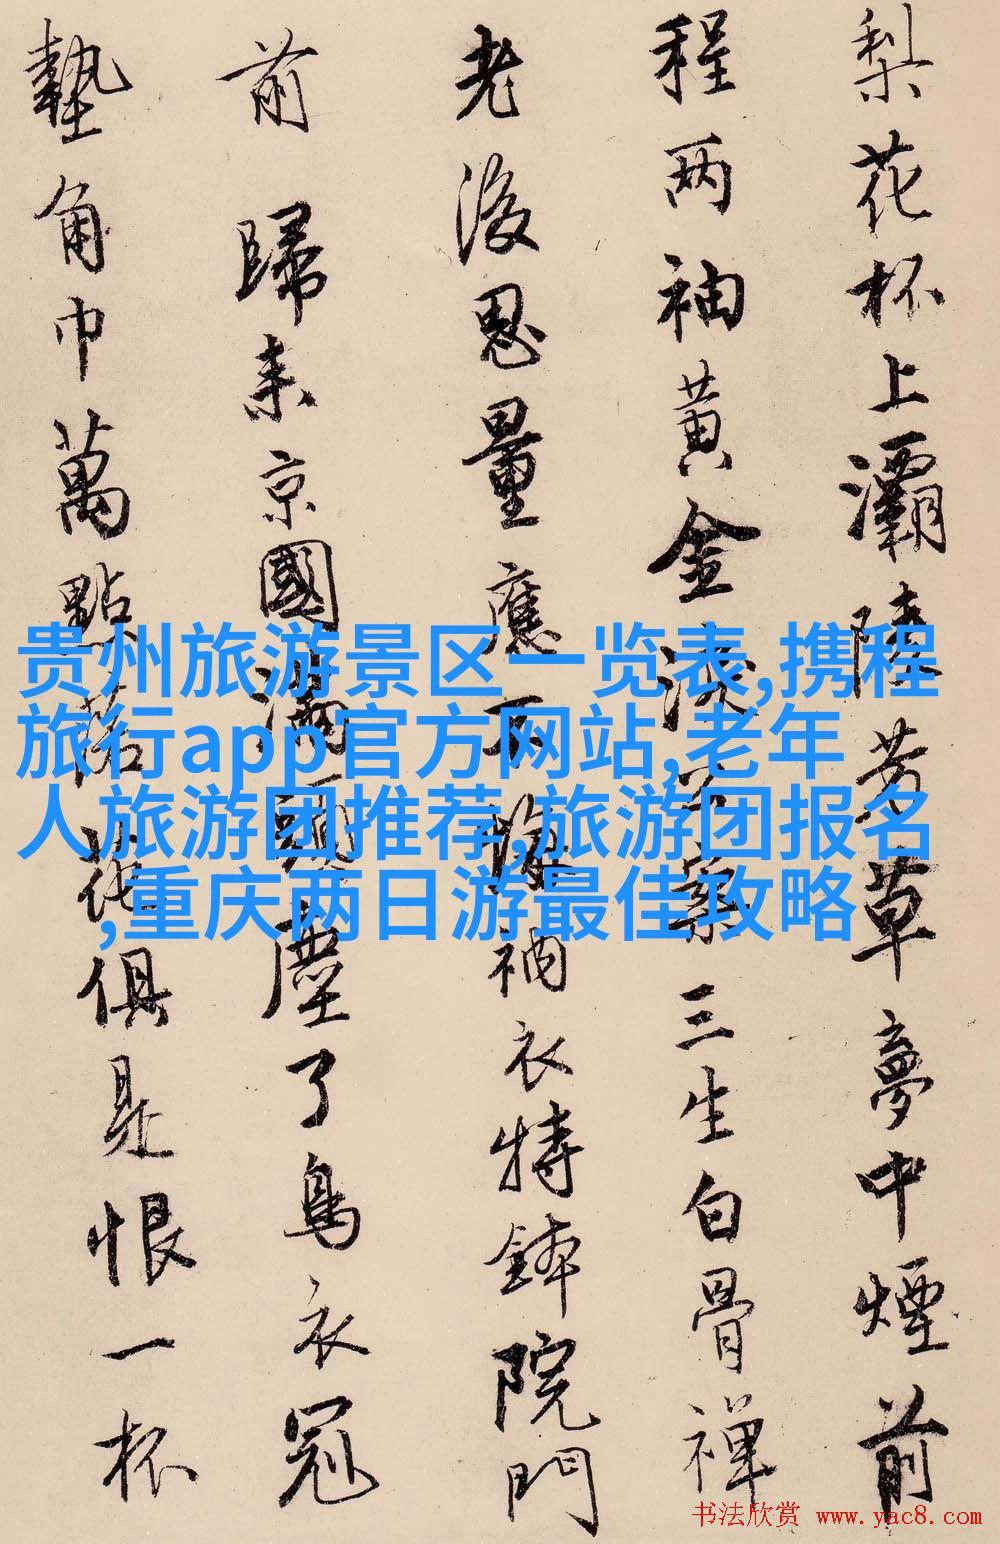 梨花杯上灞陵芳草夢中煙前
程两袖黄金淚公案三生白骨禅
老後思量應不悔衲衣持鉢院門
前 歸来京國滿塵了烏衣冠
墊角巾萬點落花俱是恨一杯
贵州旅游景区一览表,携程
旅行app官方网站,老年
人旅游团推荐,旅游团报名
,重庆两日游最佳攻略
书法欣赏 www.yac8.com